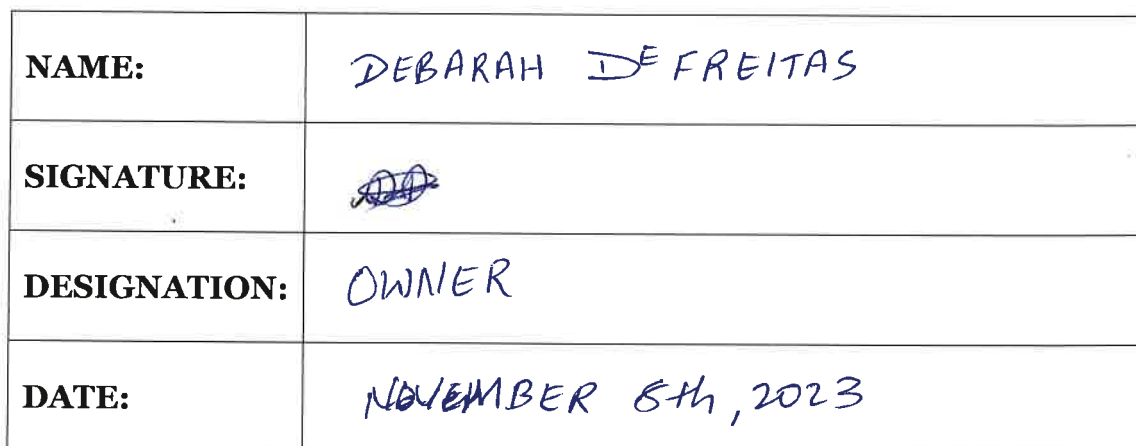 NAME: DEBARAH DE FREITAS
SIGNATURE:
DESIGNATION: OWNER
DATE: NOVEMBER 8th, 2023